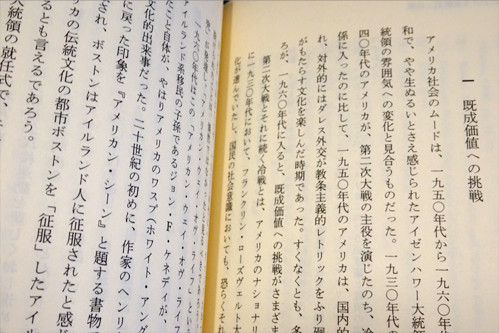 一 既成価値への挑戦
アメリカ社会のムードは、一九五〇年代から一九六〇年
和で、やや生ぬるいとさえ感じられたアイゼンハワー大統領
統領の雰囲気への変化と見合うものだった。一九三〇年代
四〇年代のアメリカが、第二次大戦の主役を演じたのち、冷
係に入ったのに比して、一九五〇年代のアメリカは、国内的
れ、対外的にはダレス外交が教条主義的レトリックをふり廻
がもたらす文化を楽しんだ時期であった。すくなくとも、多
ろが、一九六〇年代に入ると、既成価値への挑戦がさまざ
第二次大戦とそれに続く冷戦とは、アメリカのナショナリ
に一九三〇年代において、フランクリン・ローズヴェルト大
化が進んでいたし、国民の社会意識においても、恐らくそれ
一九六〇年代は、この「アメリカン・ウェイ・オヴ・ライフ」
アイルランド系移民の子孫であるジョン・F・ケネディが、
たこと自体が、やはりアメリカのワスプ(ホワイト・アング
文化的出来事だった。二十世紀の初めに、作家のヘンリ
に戻った印象を『アメリカン・シーン』と題する書物
され、ボストンはアイルランド人に征服されたと感
カの伝統文化の都市ボストンを「征服」したアイル
るとも言えるであろう。
大統領の就任式で、